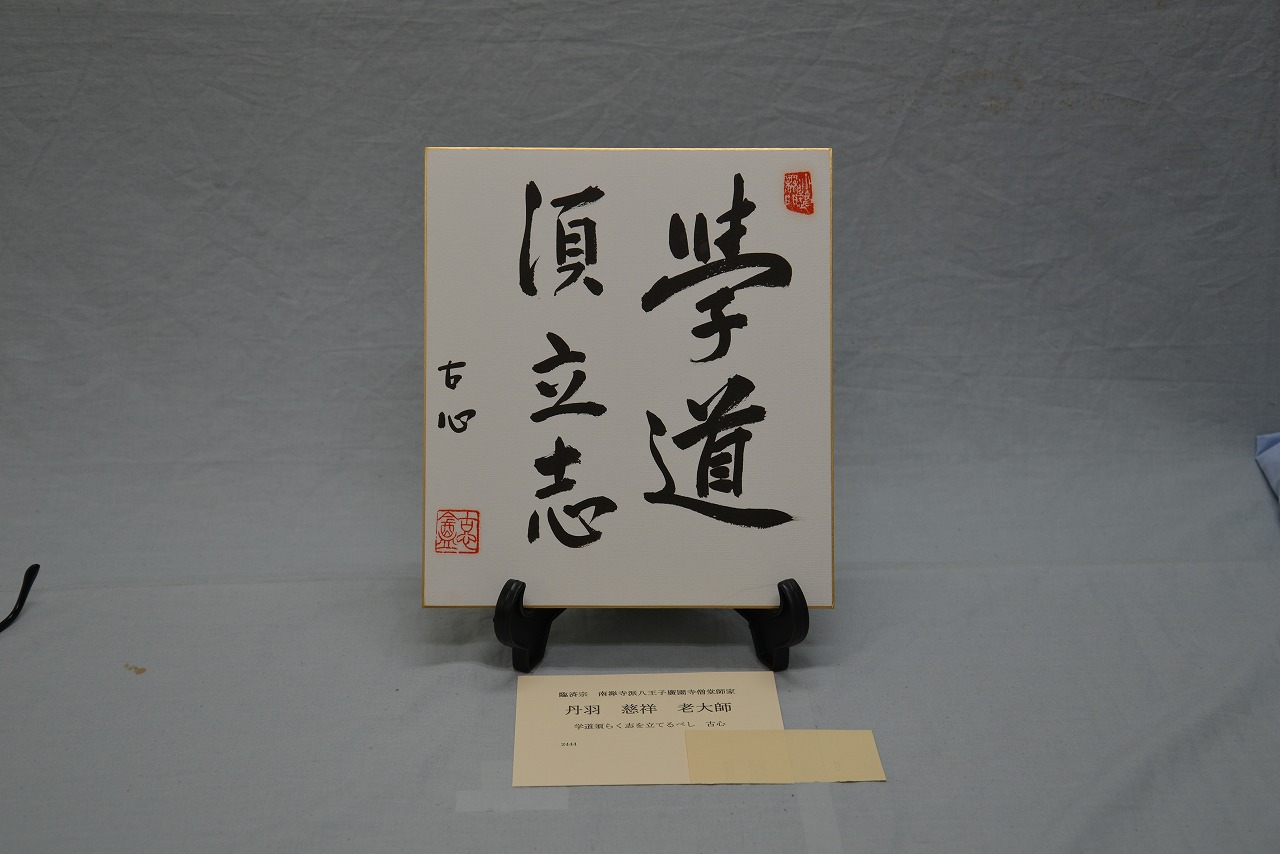 學道
須立志
古心
臨済宗　南禅寺派八王子廣園寺僧堂師家
丹羽　慈祥　老大師
学道須らく志を立てるべし　古心
2444